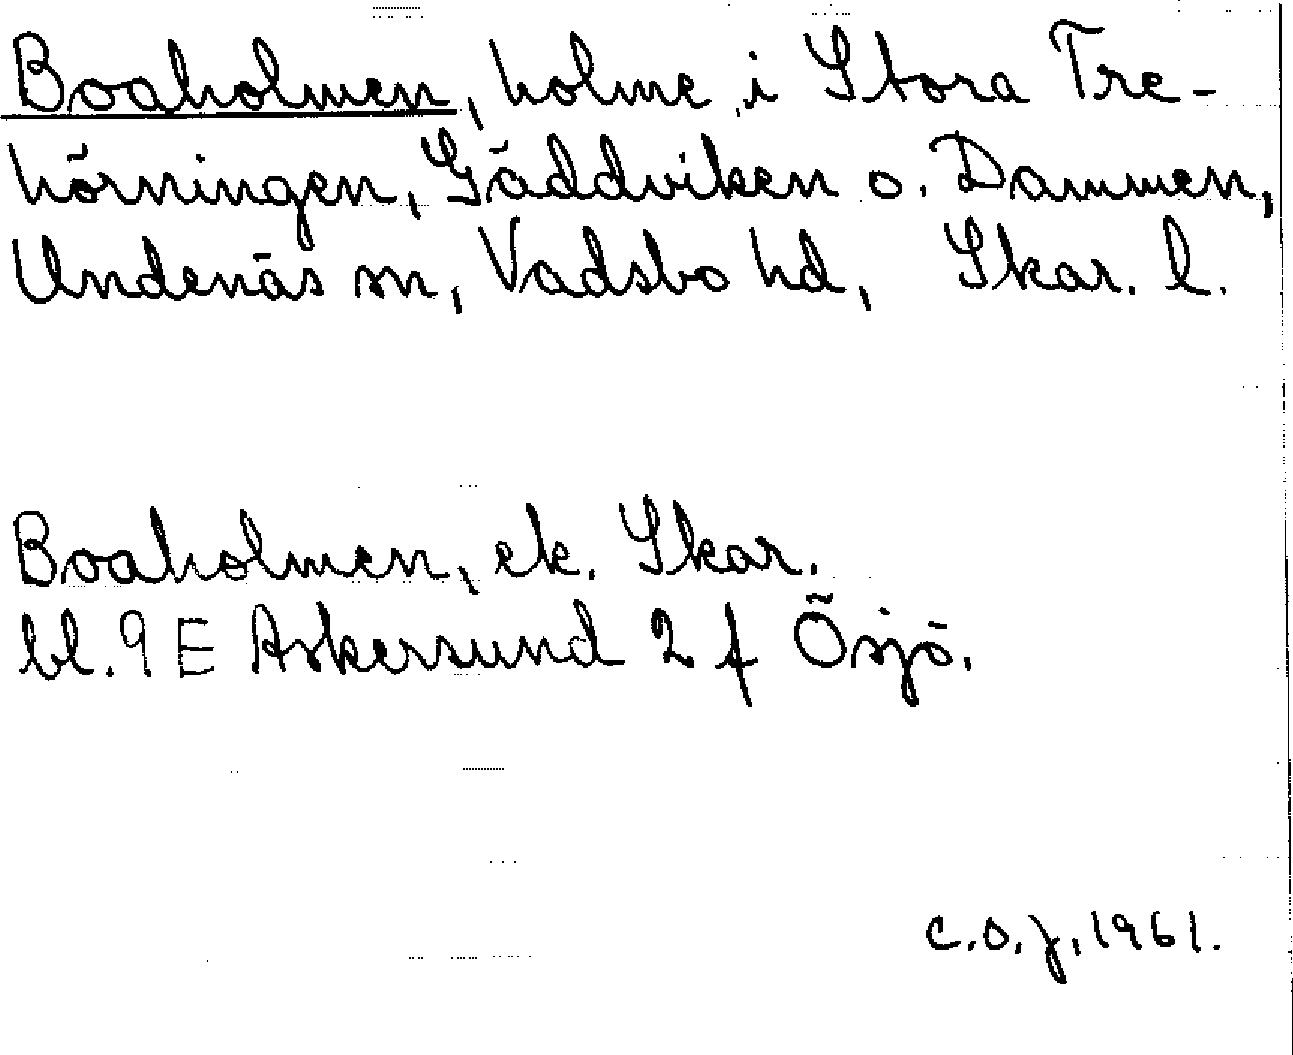 Boaholmen, holme i Stora Tre-
hörningen, Gäddviken o. Dammen,
Undenäs sn, Vadsbo hd, Skar. l.
Boaholmen, ek. Skar.
bl. 9 E Askersund 2 f Ösjö.
C.O.J. 1961.